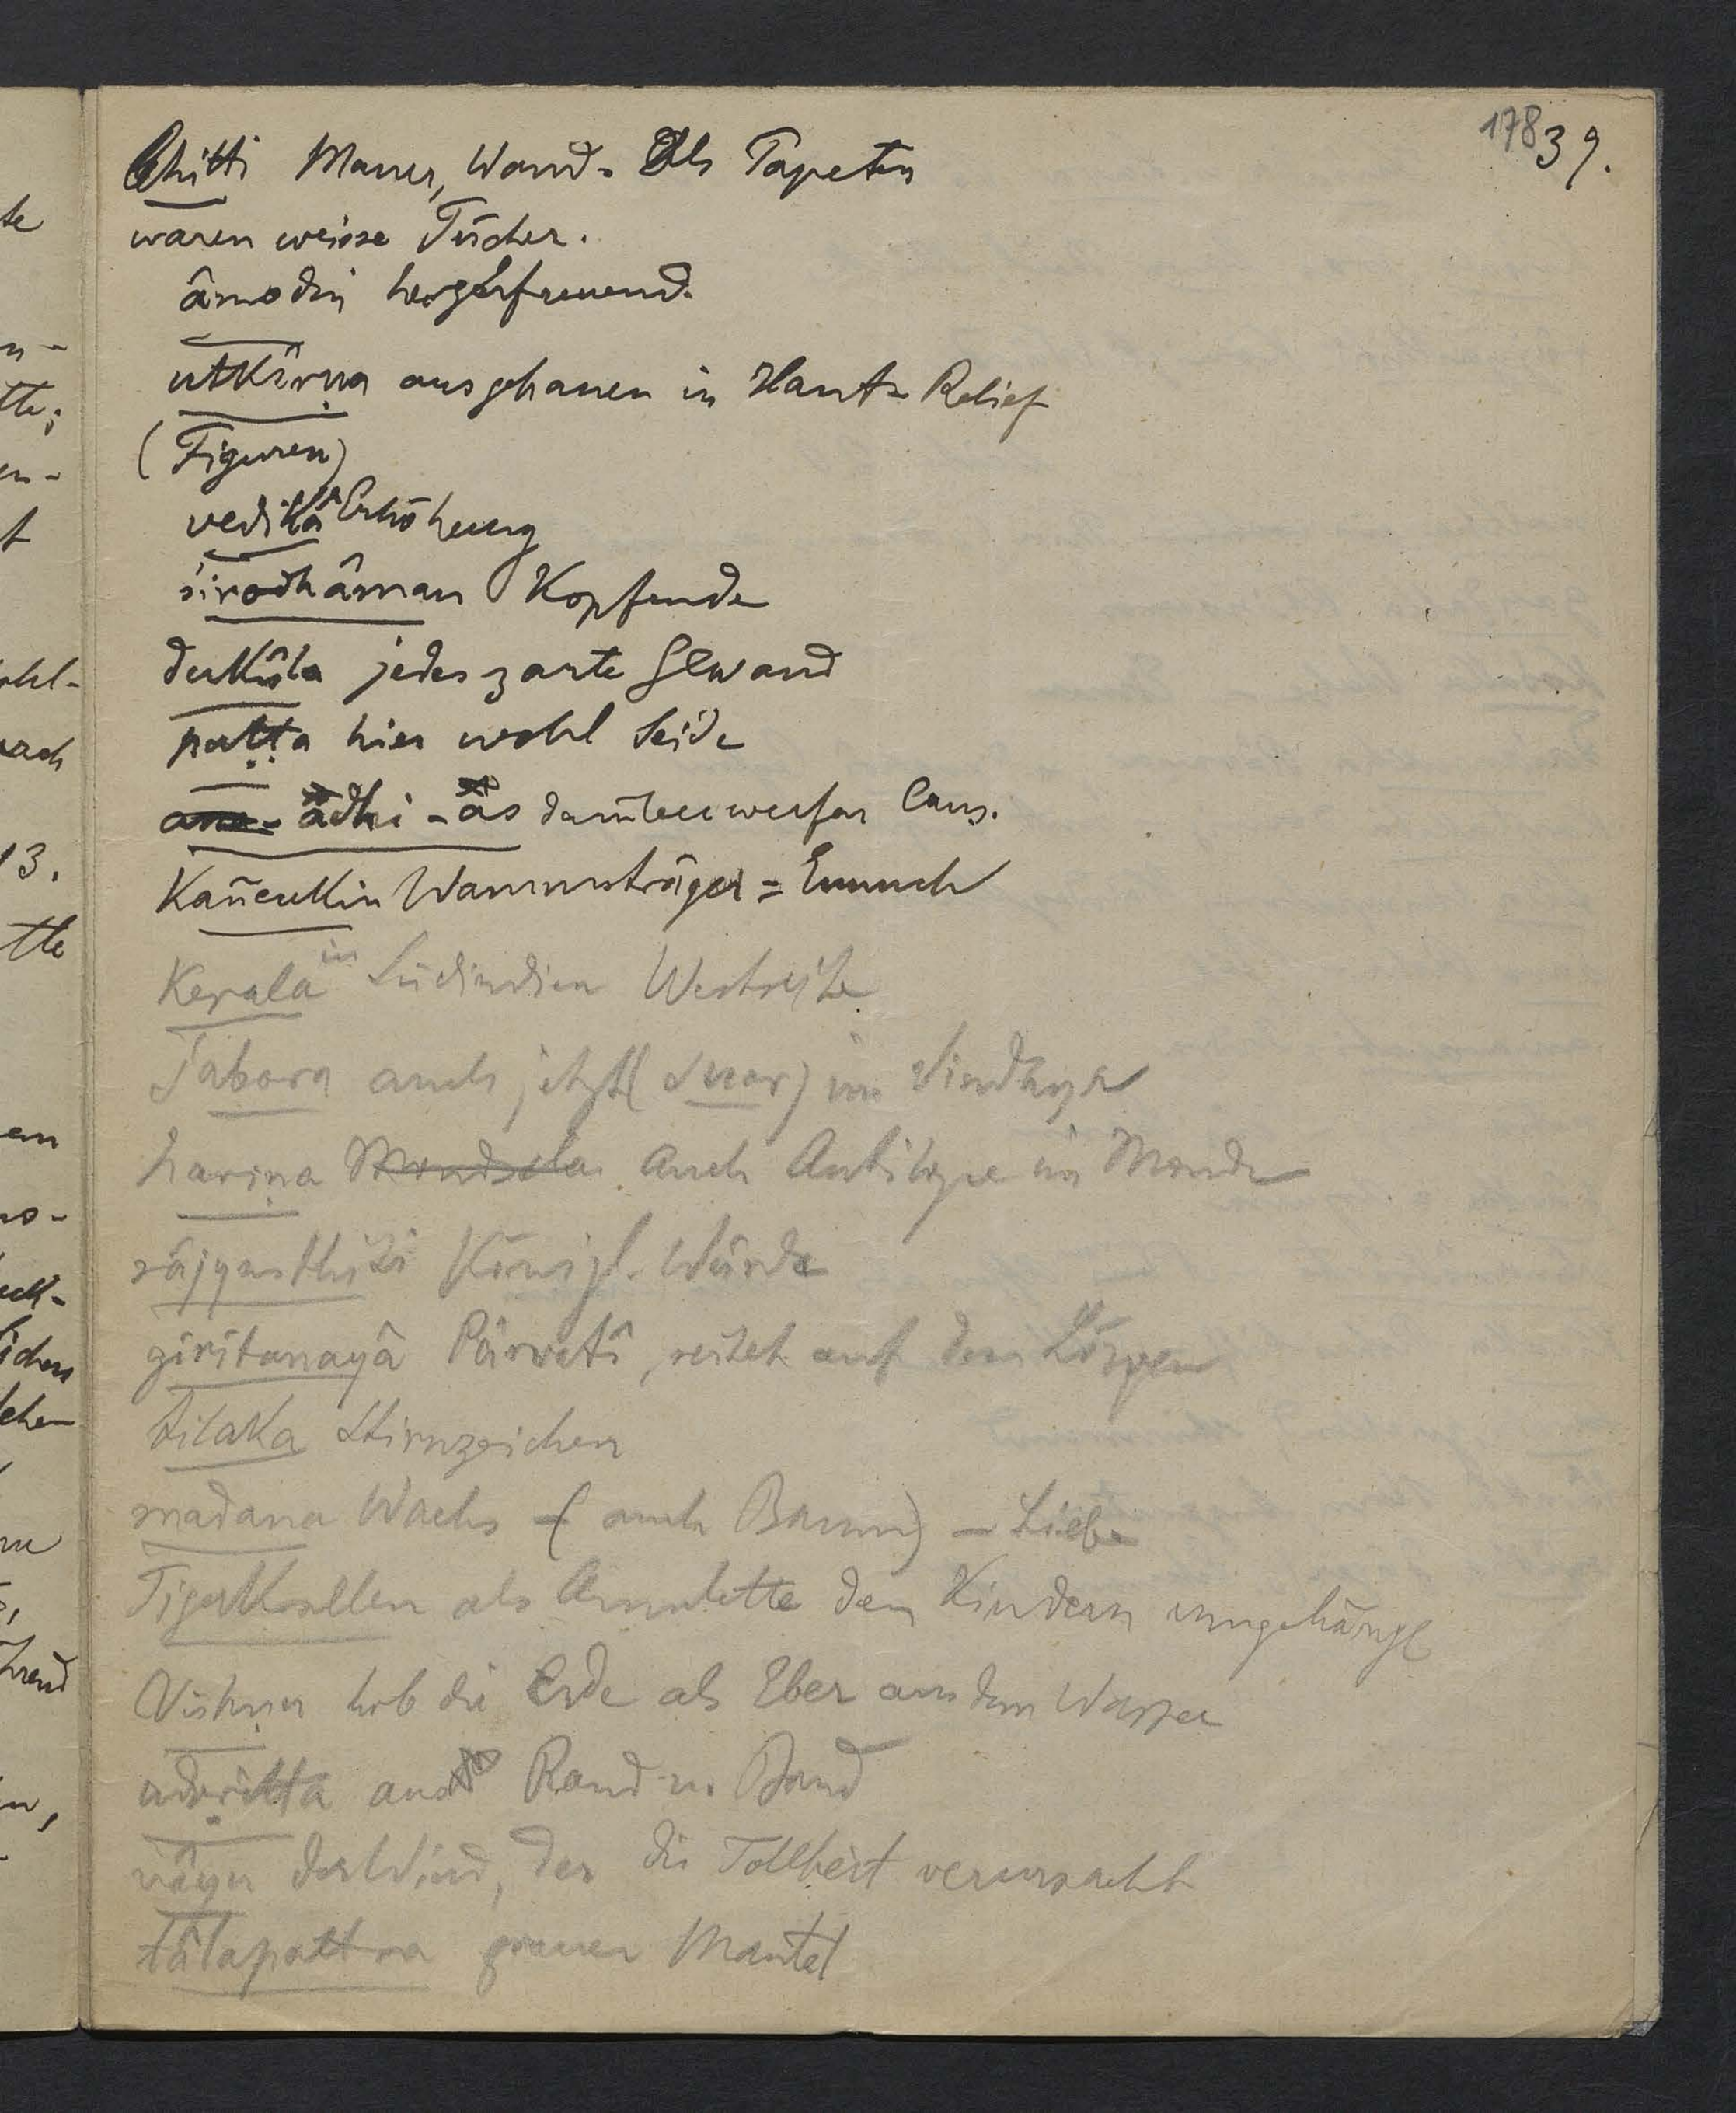 178 39.
bhitti Mauer, Wand. Als Tapeten
waren weisse Tücher.
âmodin herzerfreuend.
utkîrṇa ausgehauen in Haut-Relief
(Figuren)
vedikâ Erhöhung
śirodhâman Kopfende
dukûla jedes zarte Gewand
paṭṭa hier wohl Seide
adhi-as darüberwerfen Caus.
Kañcukin Wammsträger = Eunuch
Kerala in Südindien Westseite
Śabara auch jetzt (Suar) im Vindhya
hariṇa auch Antilope im Monde
râjyasthiti Königl. Würde
giritanayâ Pârvatî, reitet auf dem Löwen
tilaka Stirnzeichen
madana Wachs – (auch Baum) – Liebe
Tigerkrallen als Amulette den Kindern umgehängt
Vishṇu hob die Erde als Eber aus dem Wasser
Rand u. Band
vâyu der Wind, der die Tollheit verursacht
tâlapattra grauer Mantel
te
n-
tte;
en-
t
ohl-
13.
tte
en
ichen
hrend